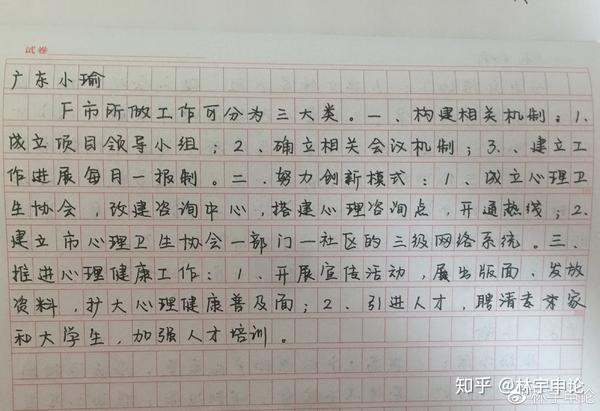 试卷
广东小瑜
F市所做工作可分为三大类。一、构建相关机制：1、
成立项目领导小组；2、确立相关会议机制；3、建立工
作进展每月一报制。二、努力创新模式：1、成立心理卫
生协会，改建咨询中心，搭建心理咨询点，开通热线；2、
建立市心理卫生协会一部门一社区的三级网络系统。三、
推进心理健康工作：1、开展宣传活动，展出版面、发放
资料，扩大心理健康普及面；2、引进人才，聘请专家
和大学生，加强人才培训。
知乎 @林宇申论
@林宇申论